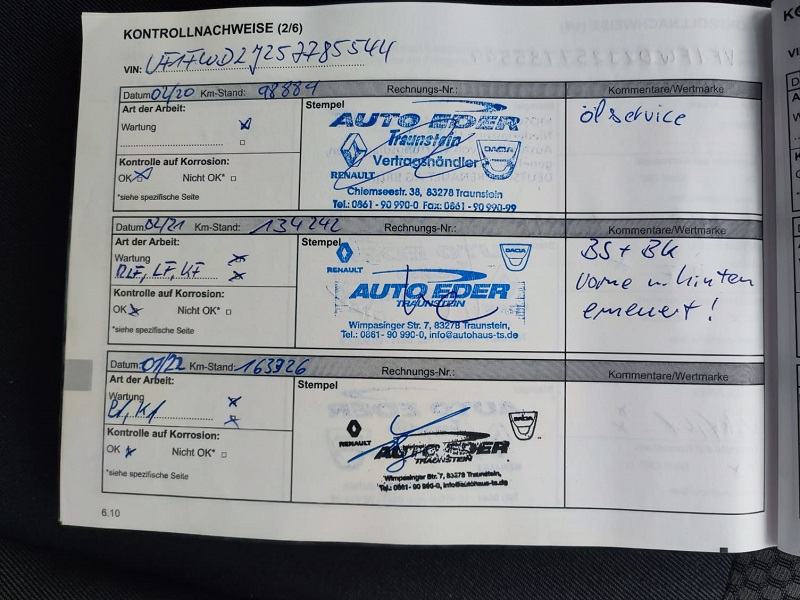 KONTROLLNACHWEISE (2/6)
VIN: VF1FWD2J257785544
Datum: 02/20 Km-Stand: 98884 Rechnungs-Nr.: Kommentare/Wertmarke
Art der Arbeit: Stempel Ölservice
Wartung
Kontrolle auf Korrosion:
OK Nicht OK*
*siehe spezifische Seite
AUTO EDER
Traunstein
Vertragshändler
RENAULT DACIA
Chiemseestr. 38, 83278 Traunstein
Tel.: 0861 - 90 990-0 Fax: 0861 - 90 990-99
Datum: 02/21 Km-Stand: 134242 Rechnungs-Nr.: Kommentare/Wertmarke
Art der Arbeit: Stempel BS + BK
Wartung vorne u. hinten
RLF, LF, KF erneuert!
Kontrolle auf Korrosion:
OK Nicht OK*
*siehe spezifische Seite
RENAULT DACIA
AUTO EDER
TRAUNSTEIN
Wimpasinger Str. 7, 83278 Traunstein,
Tel.: 0861 - 90 990-0, info@autohaus-ts.de
Datum: 01/22 Km-Stand: 163926 Rechnungs-Nr.: Kommentare/Wertmarke
Art der Arbeit: Stempel
Wartung
Kontrolle auf Korrosion:
OK Nicht OK*
*siehe spezifische Seite
RENAULT DACIA
AUTO EDER
TRAUNSTEIN
Wimpasinger Str. 7, 83278 Traunstein,
Tel.: 0861 - 90 990-0, info@autohaus-ts.de
6.10